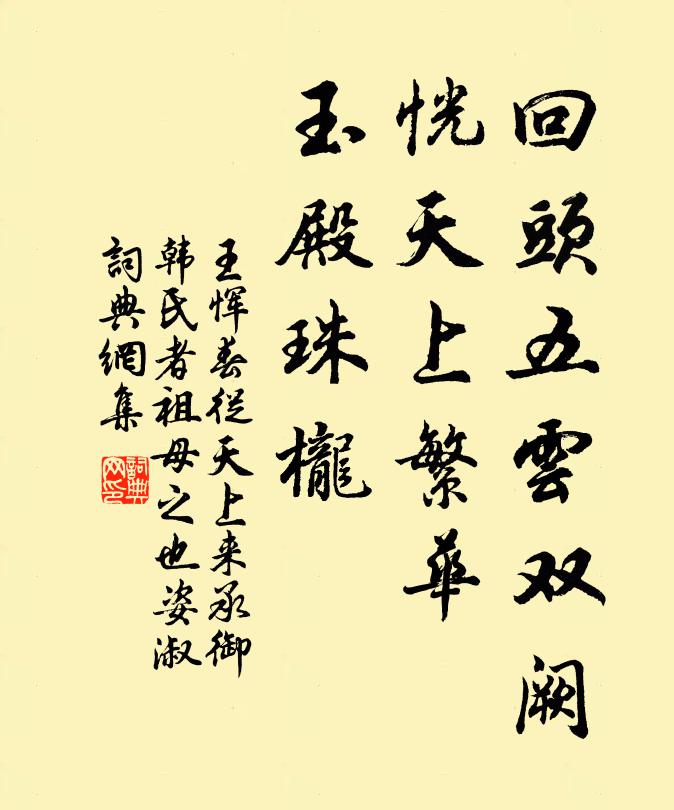 回頭五雲双阙
恍天上繁華
玉殿珠櫳
王惲春從天上来承御
韩氏者祖母之也姿淑
詞典網集
詞典網印